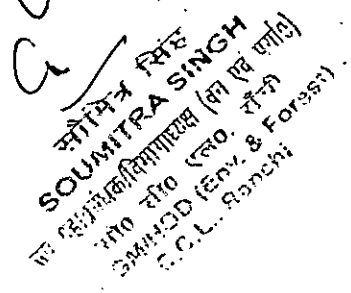 सौमित्र सिंह
SOUMITRA SINGH
महाप्रबंधक/विभागाध्यक्ष (वन एवं पर्या०)
सी० सी० एल०, राँची
GM/HOD (Env. & Forest)
C.C.L., Ranchi